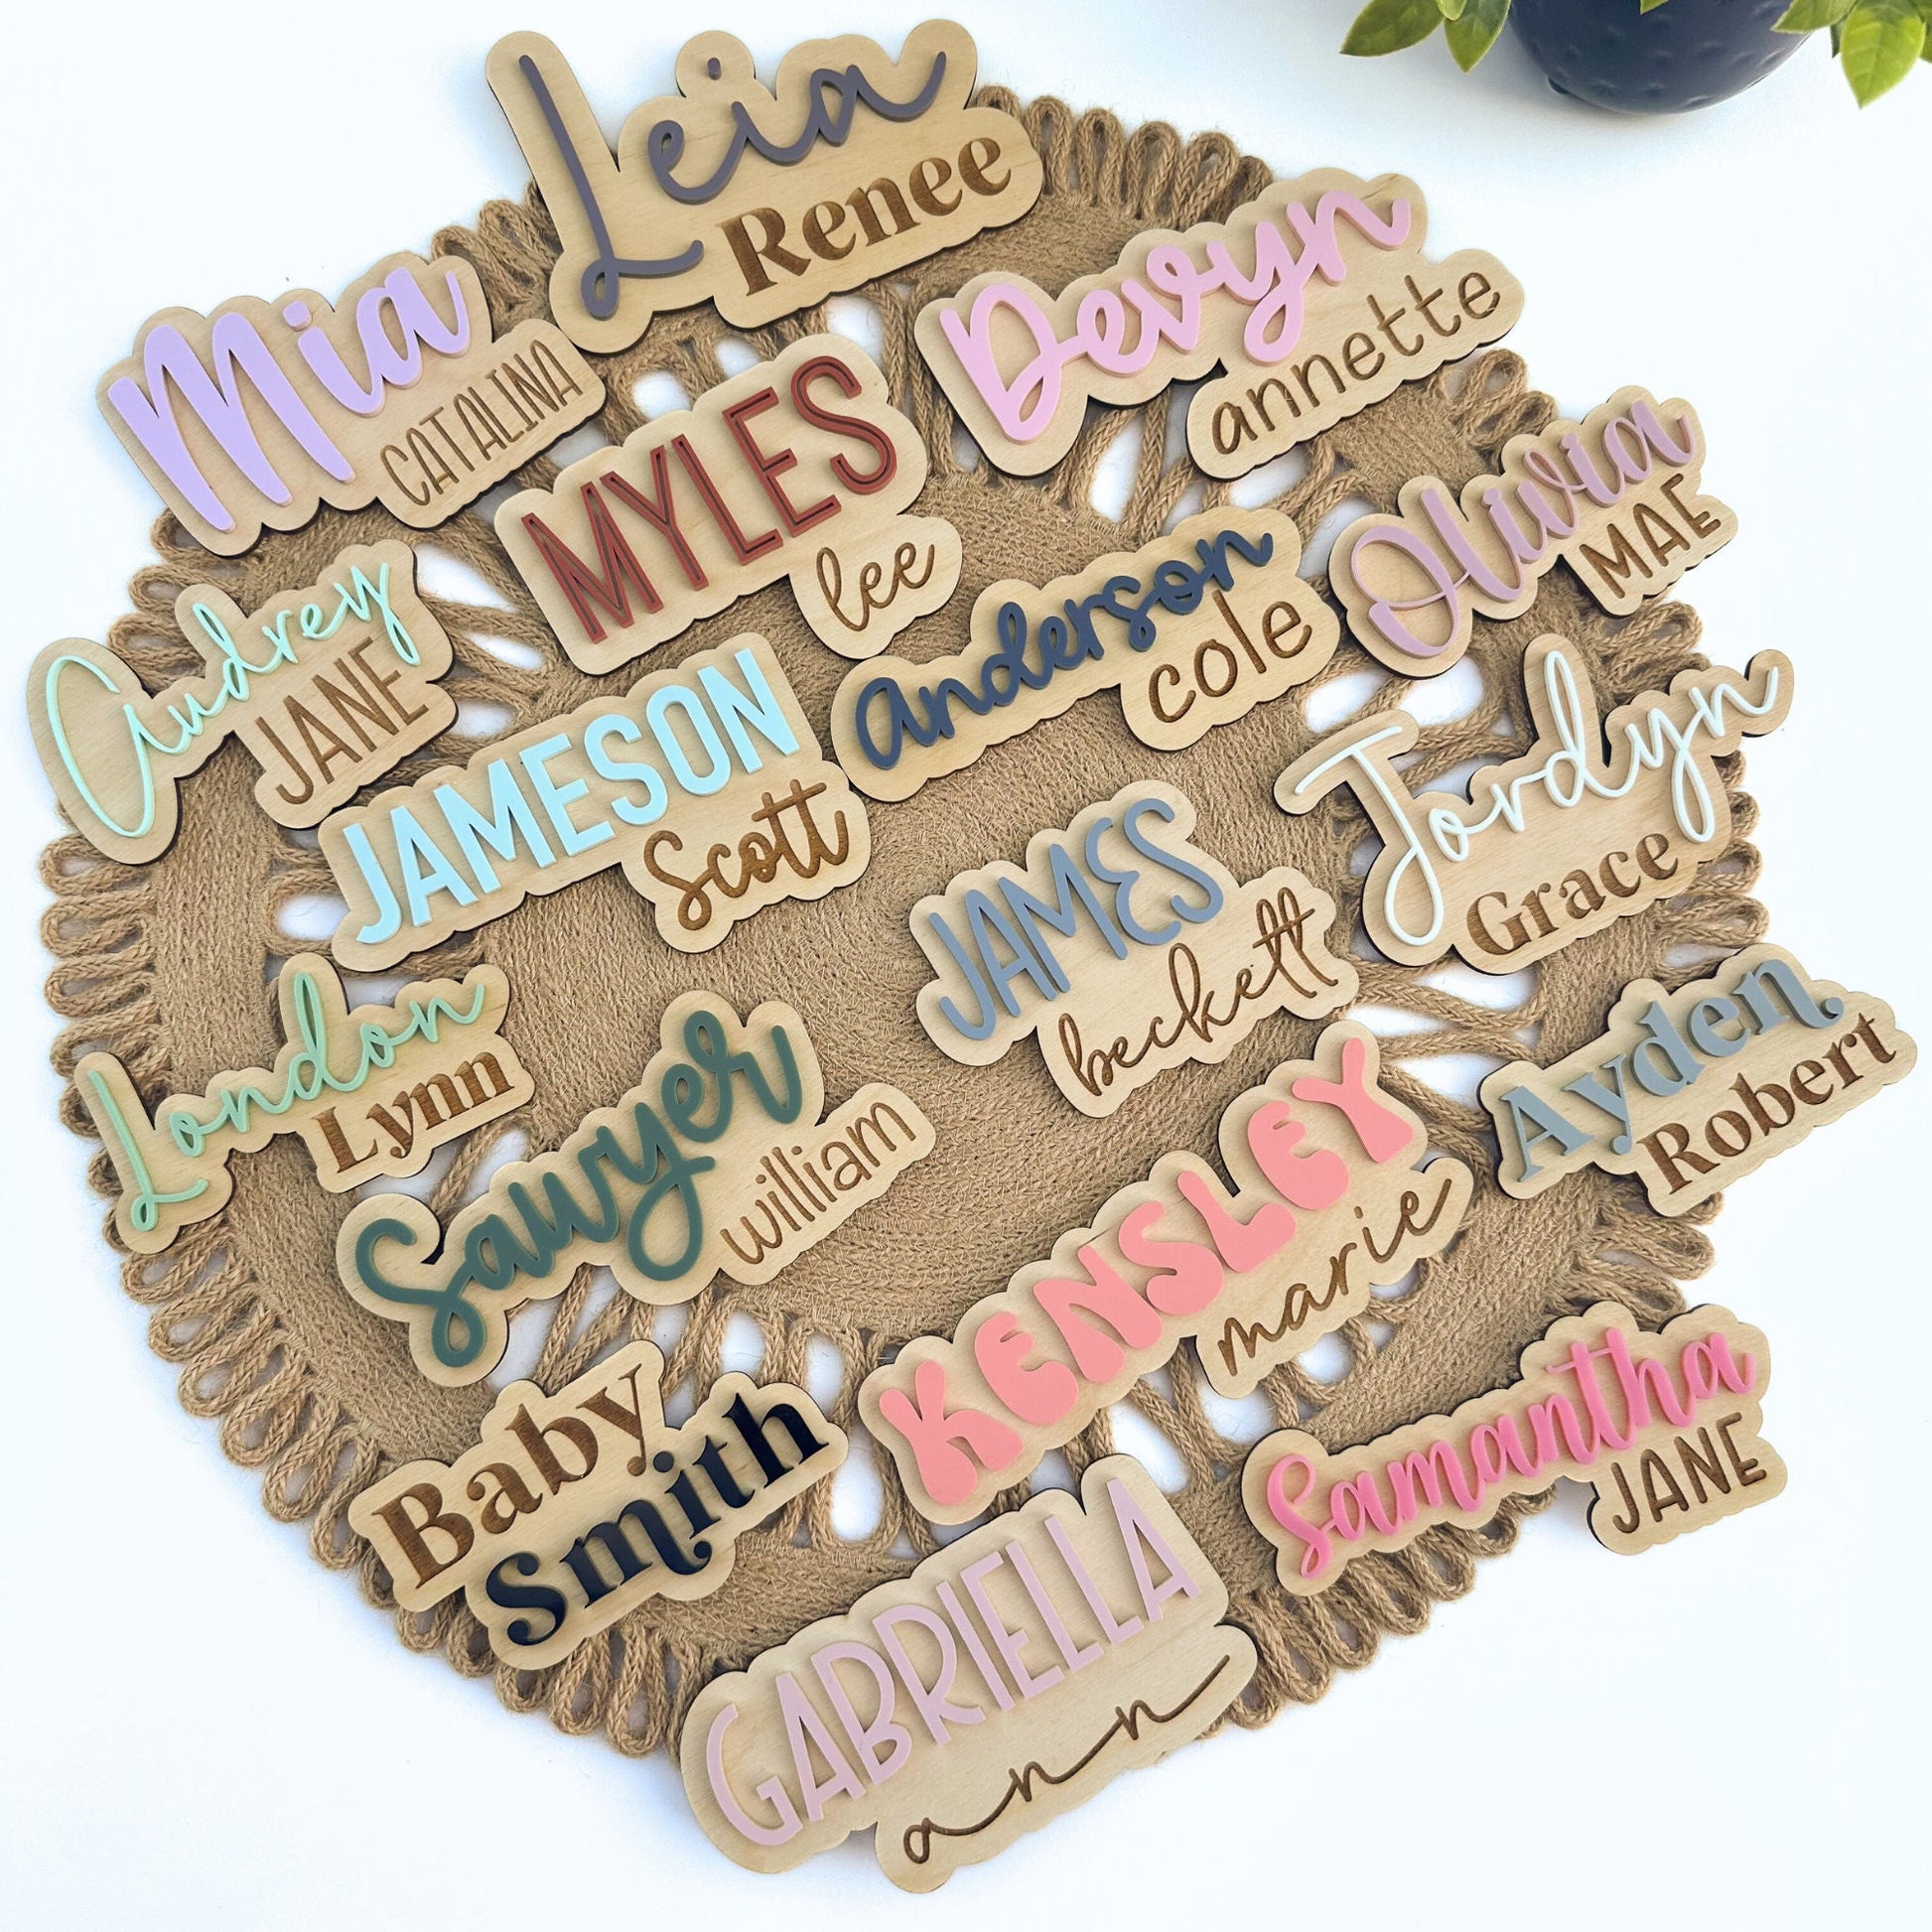 Leia
Renee
Mia
CATALINA
Devyn
annette
MYLES
lee
Olivia
MAE
Audrey
JANE
Anderson
cole
JAMESON
Scott
Jordyn
Grace
JAMES
beckett
London
Lynn
Sawyer
william
Ayden
Robert
KENSLEY
marie
Baby
smith
Samantha
JANE
GABRIELLA
ann